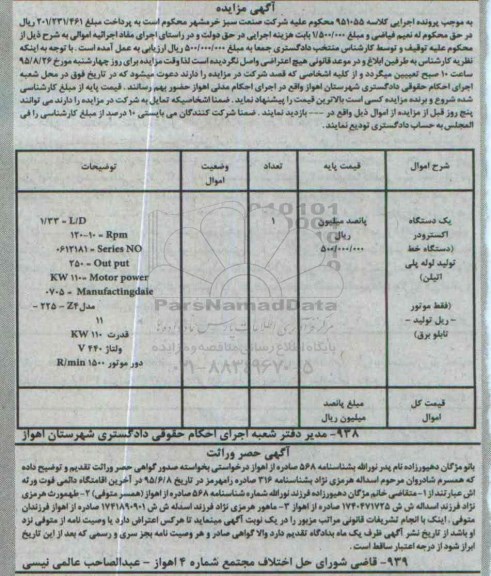 آگهی مزایده
به موجب پرونده اجرایی کلاسه ۹۵۱۰۵۵ محکوم علیه شرکت صنعت سبز خرمشهر محکوم است به پرداخت مبلغ ۲۰۱/۲۳۱/۴۶۱ ریال
در حق محکوم له نعیم فیاضی و مبلغ ۱/۵۰۰/۰۰۰ بابت هزینه اجرایی در حق دولت و در راستای اجرای مفاد اجرائیه اموالی به شرح ذیل از
محکوم علیه توقیف و توسط کارشناس منتخب دادگستری جمعا به مبلغ ۵۰۰/۰۰۰/۰۰۰ ریال ارزیابی به عمل آمده است. با توجه به اینکه
نظریه کارشناس به طرفین ابلاغ و در موعد قانونی هیچ اعتراضی واصل نگردیده است لذا وقت مزایده برای روز چهارشنبه مورخ ۹۵/۸/۲۶
ساعت ۱۰ صبح تعیین میگردد و از کلیه اشخاصی که قصد شرکت در مزایده را دارند دعوت میشود که در تاریخ فوق در محل شعبه
اجرای احکام حقوقی دادگستری شهرستان اهواز واقع در اجرای احکام مدنی اهواز حضور بهم رسانند. قیمت پایه از مبلغ کارشناسی
شده شروع و برنده مزایده کسی است بالاترین قیمت را پیشنهاد نماید. ضمنا اشخاصیکه تمایل به شرکت در مزایده را دارند می توانند
پنج روز قبل از مزایده از اموال ذیل واقع در --- بازدید نمایند. ضمنا شرکت کنندگان می بایستی ۱۰ درصد از مبلغ کارشناسی را فی
المجلس به حساب دادگستری تودیع نمایند.
شرح اموال قیمت پایه تعداد وضعیت اموال توضیحات
یک دستگاه
اکسترودر
(دستگاه خط
تولید لوله پلی
اتیلن)
(فقط موتور
- ریل تولید -
تابلو برق)
پانصد میلیون
ریال
۵۰۰/۰۰۰/۰۰۰
۱
L/D = ۱/۳۳
Rpm = ۱۰-۱۳۰
Series NO = ۰۶۱۲۱۸۱
Out put = ۲۵۰
Motor power =۱۱۰ KW
Manufactingdaie = ۰۷۰۵
مدل Z۴ - ۲۲۵ -
۱۱
قدرت ۱۱۰ KW
ولتاژ ۴۴۰ V
دور موتور ۱۵۰۰ R/min
قیمت کل
اموال
مبلغ پانصد
میلیون ریال
ParsNamadData
۰۲۱-۸۸۳۴۹۶۷۰-۵
۹۳۸- مدیر دفتر شعبه اجرای احکام حقوقی دادگستری شهرستان اهواز
آگهی حصر وراثت
بانو مژگان دهیورزاده نام پدر نورالله بشناسنامه ۵۶۸ صادره از اهواز درخواستی بخواسته صدور گواهی حصر وراثت تقدیم و توضیح داده
که همسرش شادروان مرحوم اسداله هرمزی نژاد بشناسنامه ۳۱۶ صادره رامهرمز در تاریخ ۹۵/۶/۸ در آخرین اقامتگاه دائمی فوت ورثه
اش عبارتند از ۱- متقاضی خانم مژگان دهیورزاده فرزند نورالله شماره شناسنامه ۵۶۸ صادره از اهواز (همسر متوفی) ۲- طهمورث هرمزی
نژاد فرزند اسداله ش ش ۱۷۴۰۴۷۱۷۲۵ صادره از اهواز ۳- ماهور هرمزی نژاد فرزند اسدله ش ش ۱۷۴۱۸۹۰۹۰۱ صادره از اهواز فرزندان
متوفی، اینک با انجام تشریفات قانونی مراتب مزبور را در یک نوبت آگهی مینماید تا هرکس اعتراض دارد یا وصیت نامه از متوفی نزد
او باشد از تاریخ نشر آگهی ظرف یک ماه بدادگاه تقدیم دارد والا گواهی صادر و هر وصیت نامه بجز سری و رسمی که بعد از این تاریخ
ابراز شود از درجه اعتبار ساقط است.
۹۳۹- قاضی شورای حل اختلاف مجتمع شماره ۴ اهواز - عبدالصاحب عالمی نیسی